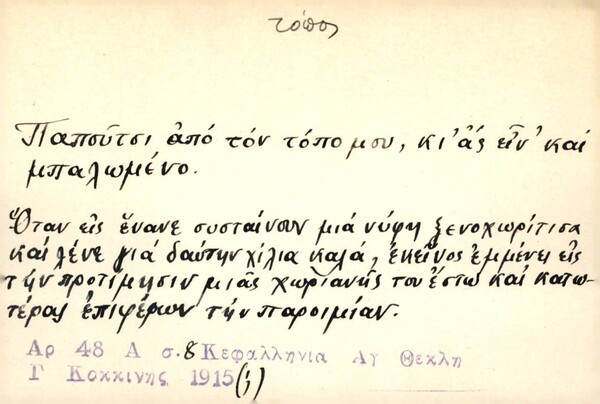 τόπος
Παπούτσι ἀπό τόν τόπο μου, κι' ἄς εἶν' καί
μπαλωμένο.
Ὅταν εἰς ἕνανε συσταίνουν μιά νύφη ξενοχωρίτισα
καί λένε γιά δαύτην χίλια καλά, ἐκεῖνος ἐμμένει εἰς
τήν προτίμησιν μιᾶς χωριανῆς του ἔστω καί κατω-
τέρας ἐπιφέρων τήν παροιμίαν.
Αρ 48 Α σ.8 Κεφαλληνια Αγ Θεκλη
Γ Κοκκινης 1915(;)